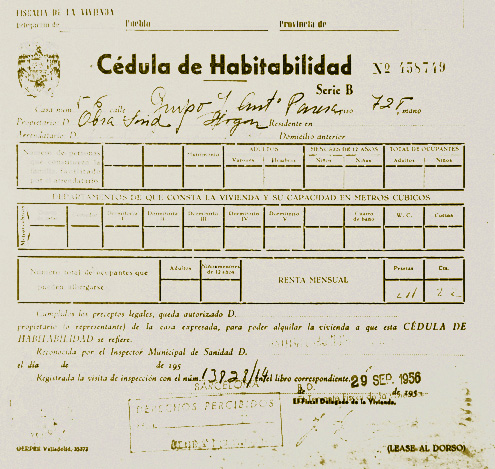 FISCALIA DE LA VIVIENDA
Delegación de Pueblo Provincia de
Cédula de Habitabilidad
Serie B
Nº 438749
Casa núm. calle Grupo S. Antº piso 72 mano
Propietario D. Obra Sind Hogar Residente en
Arrendatario D. Domicilio anterior
Número de personas que constituyen la familia
ADULTOS MENORES DE 12 AÑOS TOTAL DE OCUPANTES
Varones Hembras Niños Niñas Adultos Niños
DEPARTAMENTOS DE QUE CONSTA LA VIVIENDA Y SU CAPACIDAD EN METROS CUBICOS
Dormitorio I Dormitorio II Dormitorio III Dormitorio IV Dormitorio V Cuarto de baño W. C.
Número total de ocupantes que pueden albergarse
Adultos Niños menores de 12 años
RENTA MENSUAL
Pesetas Cts.
Cumplidos los preceptos legales, queda autorizado D.
propietario (o representante) de la casa expresada, para poder alquilar la vivienda a que esta CÉDULA DE
HABITABILIDAD se refiere.
Reconocida por el Inspector Municipal de Sanidad D.
el día de de 195
Registrada la visita de inspección con el núm. 13828/14 en el libro correspondiente.
29 SEP. 1956
BARCELONA
de de 195
El Fiscal Delegado de la Vivienda.
DERECHOS PERCIBIDOS
GERPER Valladolid.
(LEASE AL DORSO)